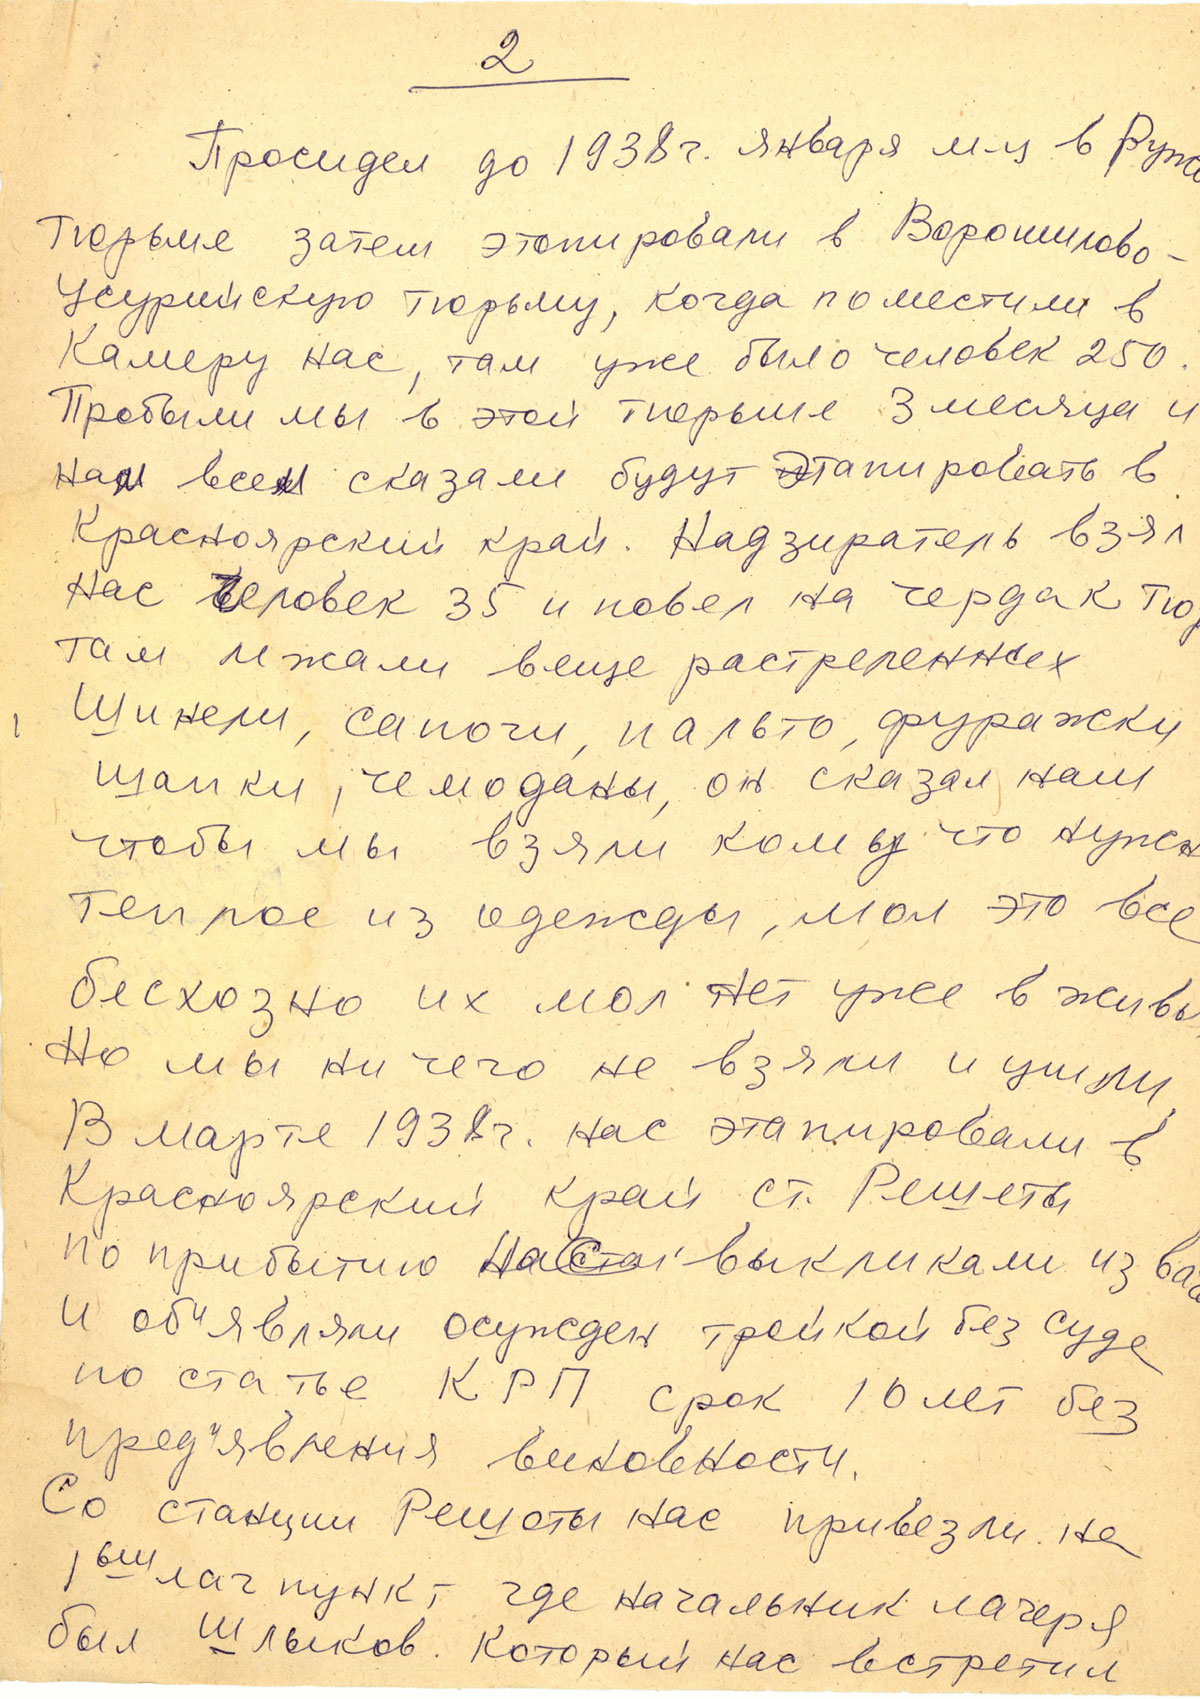 2
Просидел до 1938г. января м-ц в Руже
тюрьме затем этопировали в Ворошилово-
Усурийскую тюрьму, когда поместили в
Камеру нас, там уже было человек 250.
Пробыли мы в этой тюрьме 3 месяца и
нам всем сказали будут этапировать в
Красноярский край. Надзиратель взял
нас человек 35 и повел на чердак тюр
там лжали веще растреленных
Шинели, сапоги, пальто, фуражки
шапки, чемоданы, он сказал нам
чтобы мы взяли кому что нужн
теплое из одежды, мол это все
бесхозно их мол нет уже в живы
Но мы ничего не взяли и ушли,
В марте 1938г. нас этапировали в
Красноярский край ст. Решеты
по прибытию нас выкликали из ваг
и об"являли осужден тройкой без суда
по статье КРП срок 10 лет без
пред"явления виновности.
Со станции Решоты нас привезли на
1ый лагпункт где начальник лагеря
был Шлыков. Который нас встретил